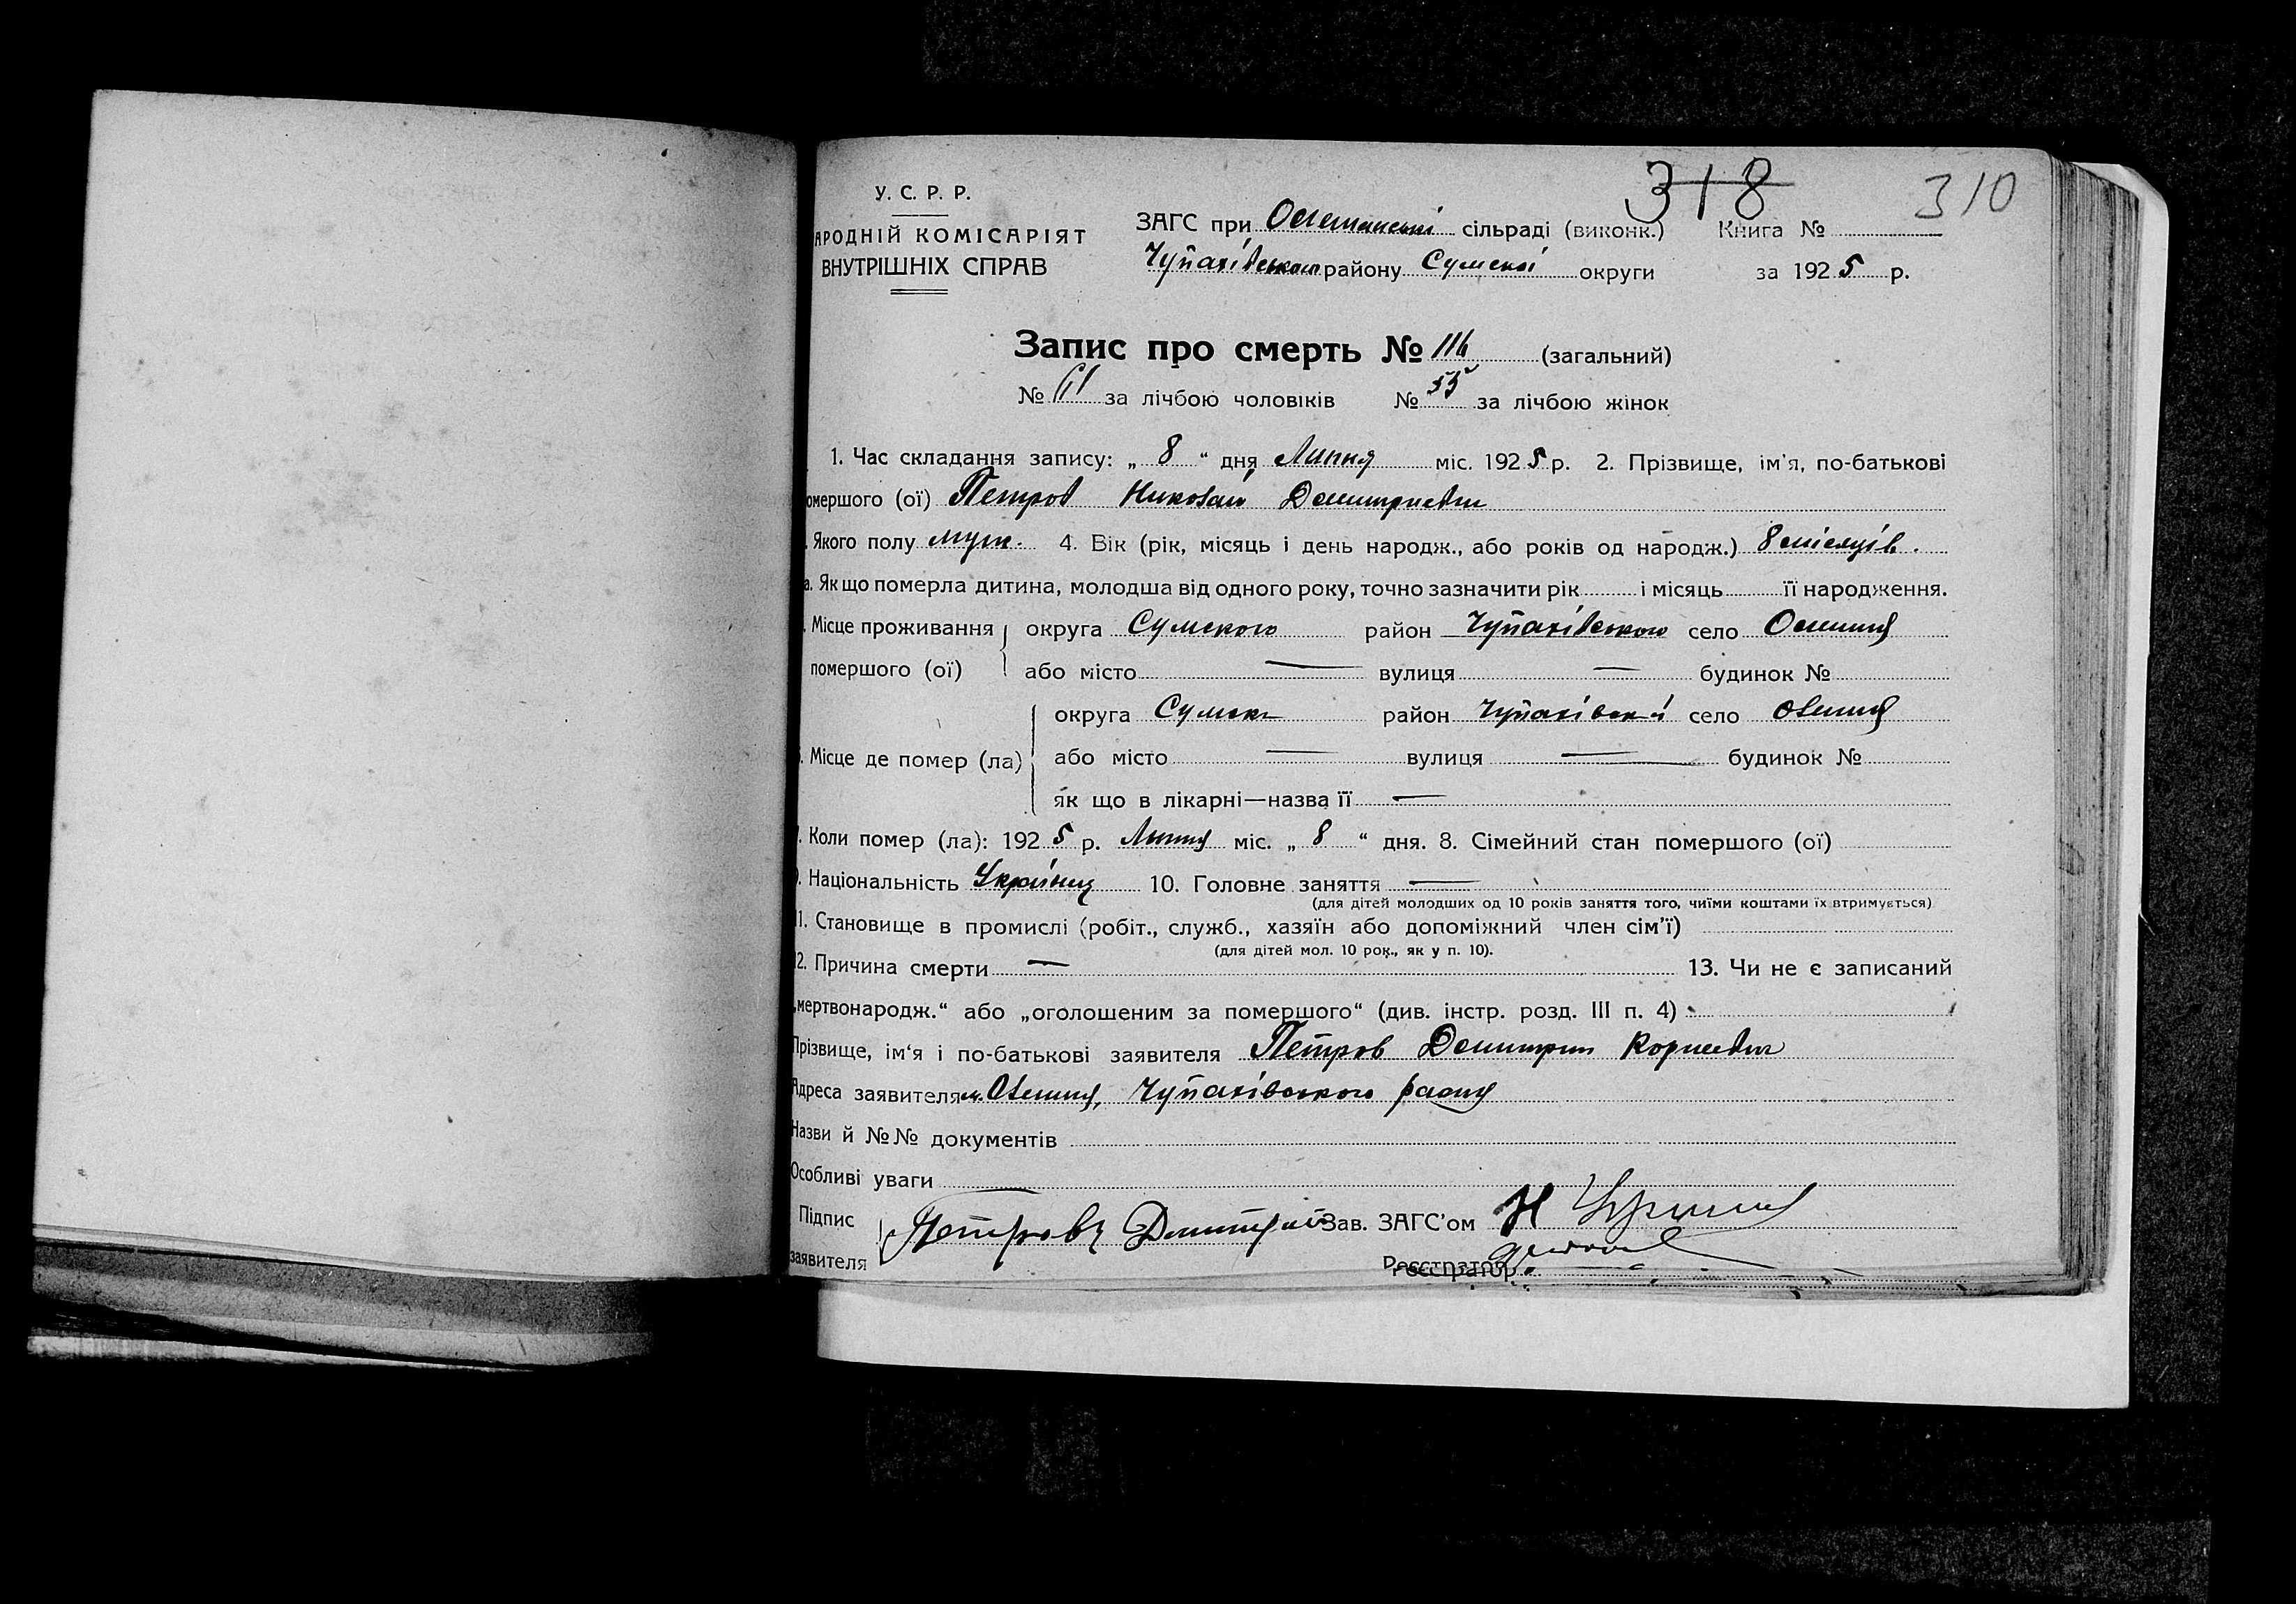 318
310
У. С. Р. Р.
АРОДНІЙ КОМІСАРІЯТ
ВНУТРІШНІХ СПРАВ
ЗАГС при сільраді (виконк.) Книга №
Чупахівського району Сумської округи за 1925 р.
Запис про смерть № 116 (загальний)
№ 61 за лічбою чоловіків № 55 за лічбою жінок
1. Час складання запису: „ 8 “ дня Липня міс. 1925 р. 2. Прізвище, ім'я, по-батькові
омершого (ої) Петров Николай Демитриевич
. Якого полу муж. 4. Вік (рік, місяць і день народж., або років од народж.) 8 місяців.
а. Як що померла дитина, молодша від одного року, точно зазначити рік і місяць її народження.
. Місце проживання округа Сумського район Чупахівського село Олешня
помершого (ої) або місто — вулиця — будинок №
округа Сумськ район Чупахівський село Олешня
. Місце де помер (ла) або місто — вулиця — будинок №
як що в лікарні—назва її —
. Коли помер (ла): 1925 р. Липня міс. „ 8 “ дня. 8. Сімейний стан помершого (ої)
. Національність 10. Головне заняття —
(для дітей молодших од 10 років заняття того, чиїми коштами їх втримується)
11. Становище в промислі (робіт., служб., хазяїн або допоміжний член сім'ї)
(для дітей мол. 10 рок., як у п. 10).
12. Причина смерти — 13. Чи не є записаний
„мертвонародж.“ або „оголошеним за помершого“ (див. інстр. розд. III п. 4)
Прізвище, ім'я і по-батькові заявителя Петров Демитрий Корнеевич
Адреса заявителя м. Олешня, Чупахівського району
Назви й №№ документів
Особливі уваги
Підпис Петровъ Дмитрий Зав. ЗАГС'ом
заявителя
Реєстратор